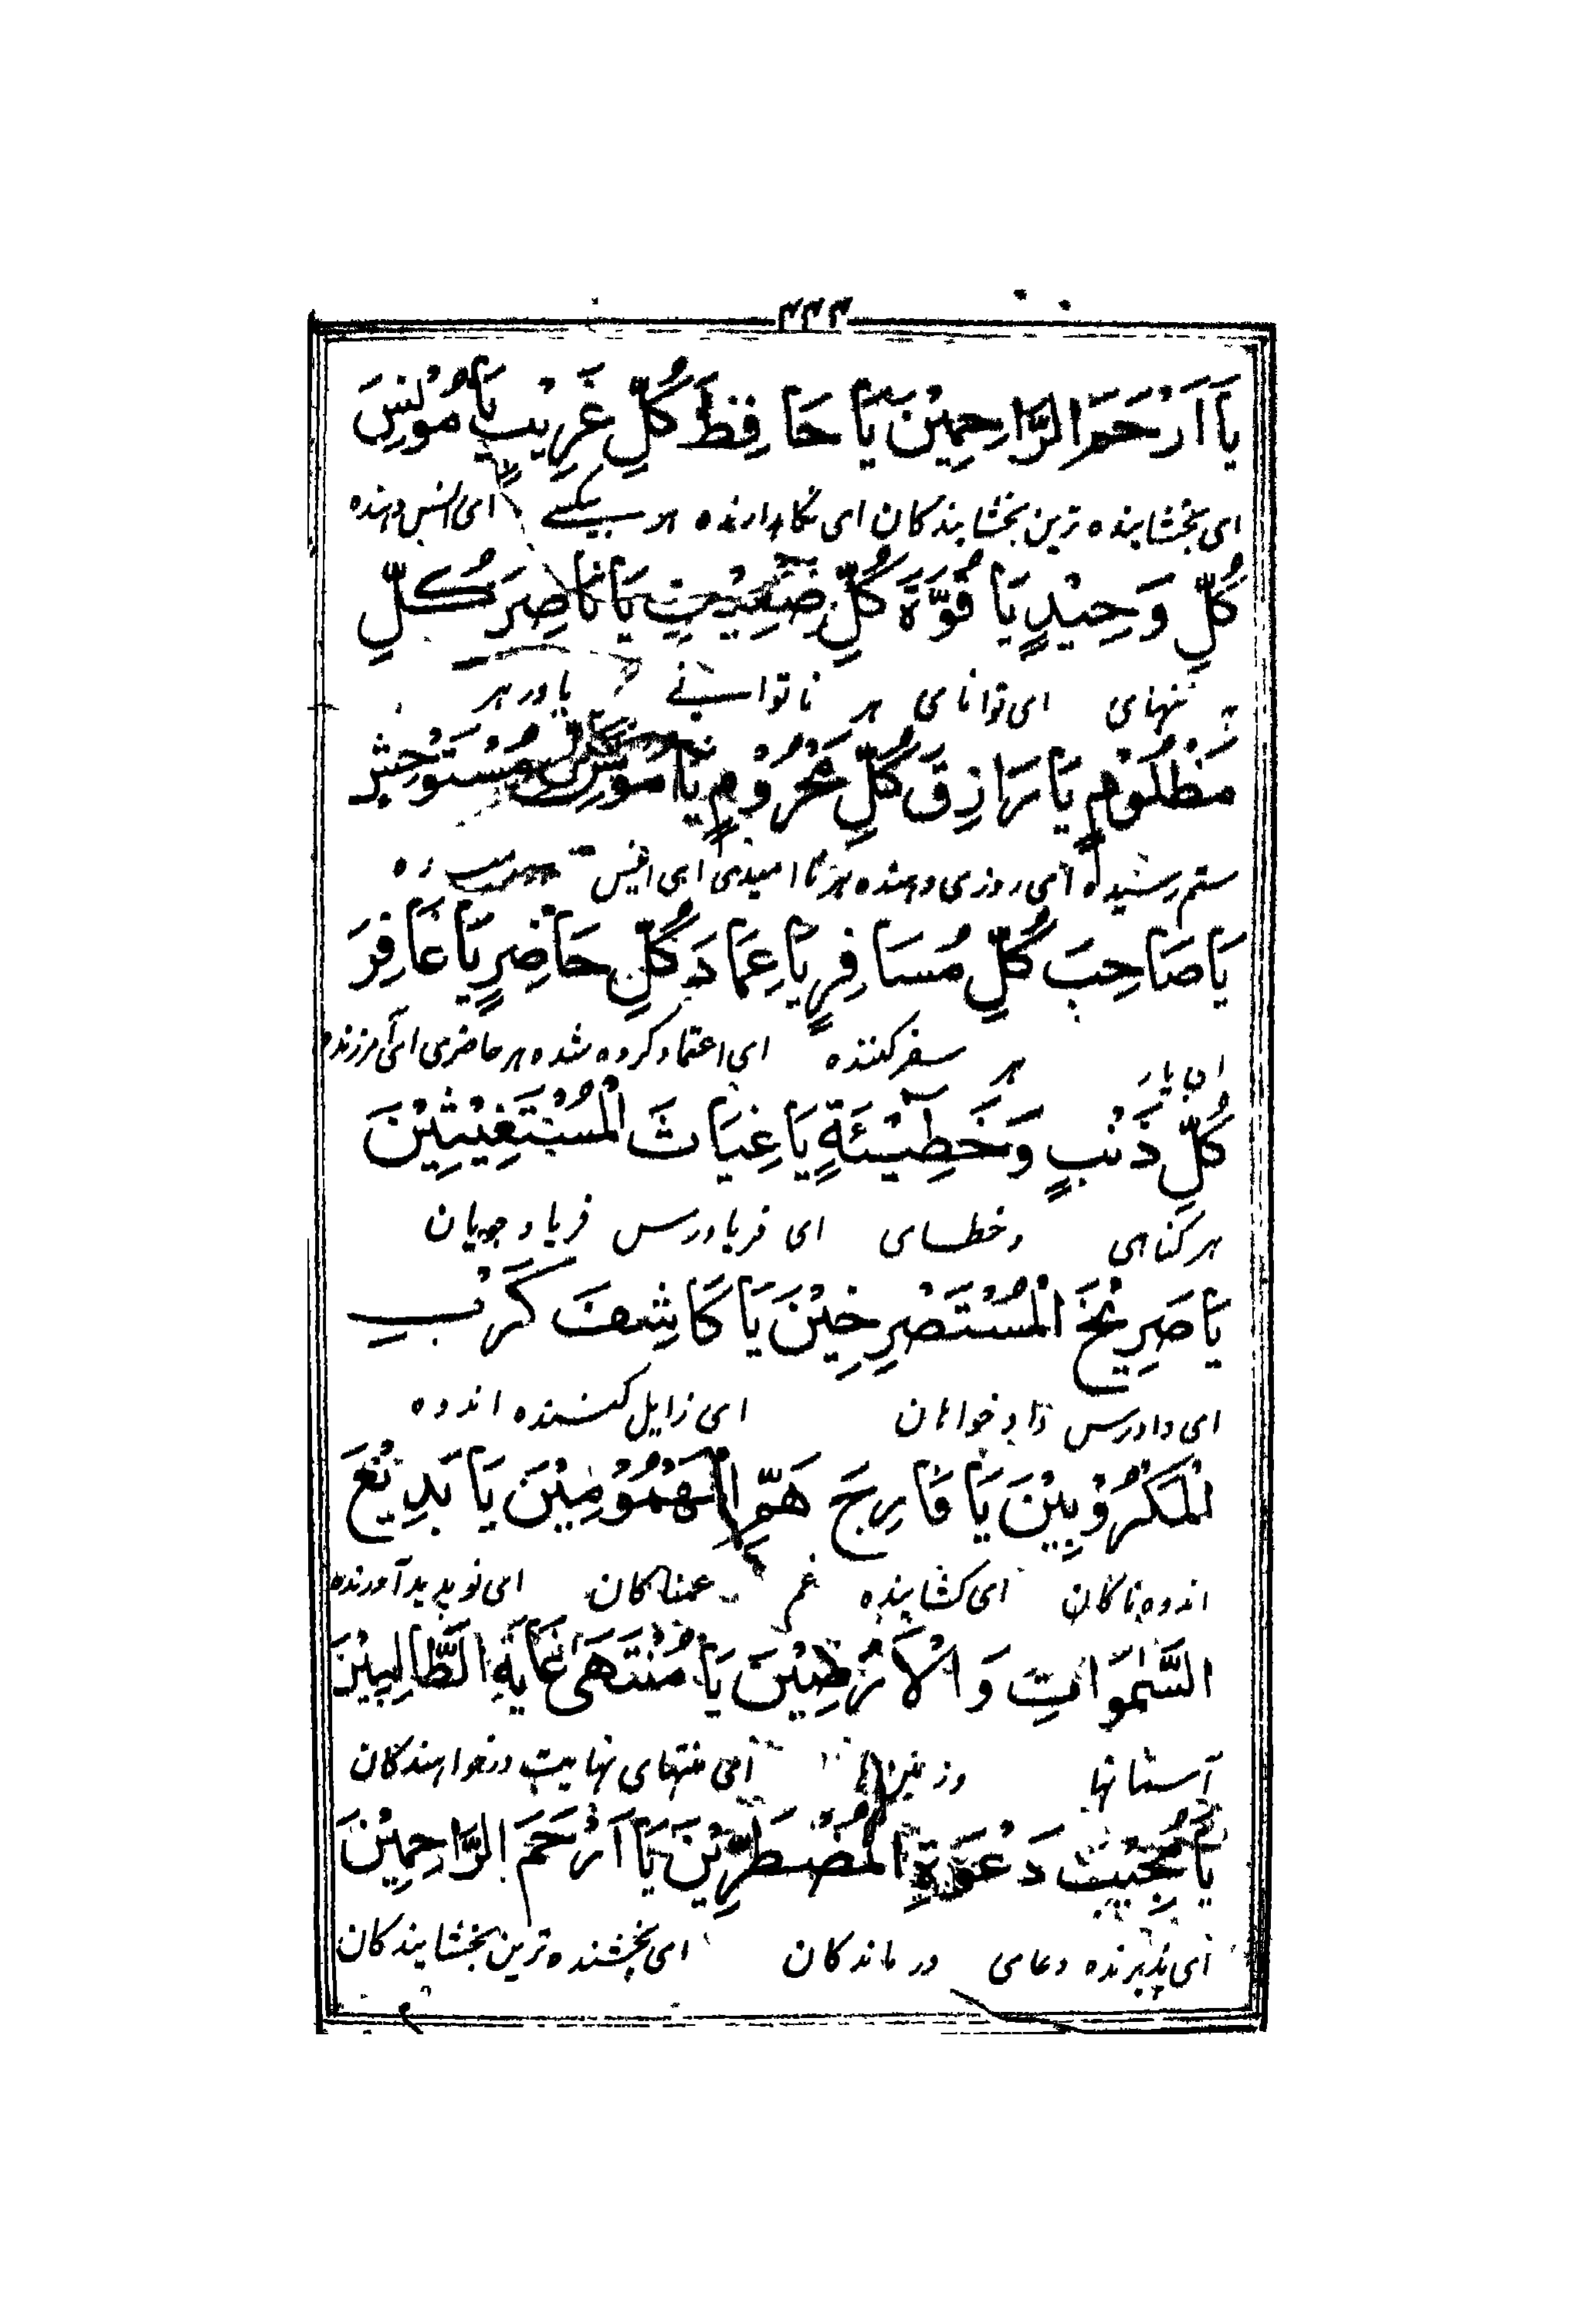 ۳۳۳
يَا اَرْحَمَ الرَّاحِمِيْنَ يَا حَافِظَ كُلِّ غَرِيْبٍ يَا مُوْنِسَ
ای بخشاینده ترین بخشایندکان ای نگاهدارنده هر بیکسے ای انس دهنده
كُلِّ وَحِيْدٍ يَا قُوَّةَ كُلِّ ضَعِيْفٍ يَا نَاصِرَ كُلِّ
تنهای ای توانای هر ناتوانے یاور هر
مَظْلُوْمٍ يَا رَازِقَ كُلِّ مَحْرُوْمٍ يَا مُوْنِسَ كُلِّ مُسْتَوْحِشٍ
ستم رسیده ای روزی دهنده هر نا امیدی ای انیس
يَا صَاحِبَ كُلِّ مُسَافِرٍ يَا عِمَادَ كُلِّ حَاضِرٍ يَا غَافِرَ
ای یار هر سفر کننده ای اعتماد کرده شده هر حاضری ای آمرزنده
كُلِّ ذَنْبٍ وَخَطِيْئَةٍ يَا غِيَاثَ الْمُسْتَغِيْثِيْنَ
هر کناهی و خطای ای فریادرس فریاد جویان
يَا صَرِيْخَ الْمُسْتَصْرِخِيْنَ يَا كَاشِفَ كَرْبِ
ای دادرس داد خواهان ای زایل کننده اندوه
الْمَكْرُوْبِيْنَ يَا فَارِجَ هَمِّ الْمَهْمُوْمِيْنَ يَا بَدِيْعَ
اندوه ناکان ای کشاینده غم غمناکان ای نو پدید آورنده
السَّمٰوَاتِ وَالْاَرَضِيْنَ يَا مُنْتَهَى غَايَةِ الطَّالِبِيْنَ
آسمانها و زمینها ای منتهای نهایت درخواهندکان
يَا مُجِيْبَ دَعْوَةِ الْمُضْطَرِّيْنَ يَا اَرْحَمَ الرَّاحِمِيْنَ
ای پذیرنده دعای درماندکان ای بخشنده ترین بخشایندکان